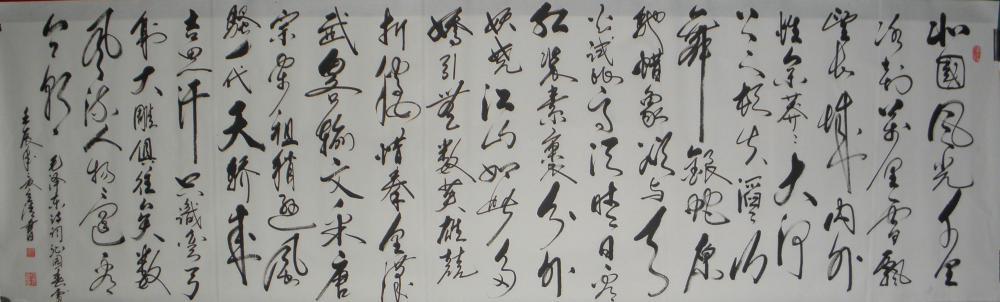 北國風光千里
冰封萬里雪飄
望长城内外
惟余莽莽大河
上下頓失滔滔山
舞銀蛇原
馳蜡象欲与天
公試比高须晴日看
红装素裹分外
妖娆江山如此多
嬌引無数英雄競
折腰惜秦皇漢
武略输文采唐
宗宋祖稍遜風
騷一代天骄成
吉思汗只識彎弓
射大雕俱往矣数
風流人物還看
今朝
毛泽东诗词沁园春雪
壬辰年書